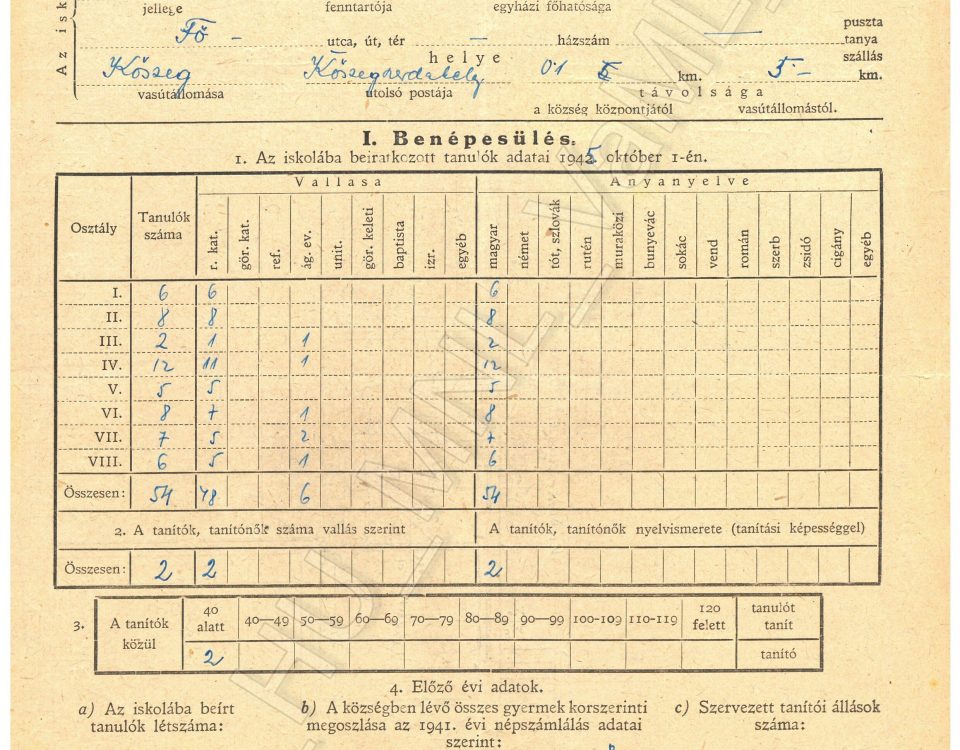 jellege fenntartója egyházi főhatósága
Az isk
Fő — utca, út, tér — házszám — puszta
tanya
szállás
helye
Kőszeg Kőszegszerdahely 0·1 km. 5·— km.
vasútállomása utolsó postája távolsága
a község központjától vasútállomástól.
I. Benépesülés.
1. Az iskolába beiratkozott tanulók adatai 1945 október 1-én.
Osztály Tanulók száma Vallása Anyanyelve
r. kat. gör. kat. ref. ág. ev. unit. gör. keleti baptista izr. egyéb magyar német tót, szlovák rutén muraközi bunyevác sokác vend román szerb zsidó cigány egyéb
I. 6 6 6
II. 8 8 8
III. 2 1 1 2
IV. 12 11 1 12
V. 5 5 5
VI. 8 7 1 8
VII. 7 5 2 7
VIII. 6 5 1 6
Összesen: 54 48 6 54
2. A tanítók, tanítónők száma vallás szerint A tanítók, tanítónők nyelvismerete (tanítási képességgel)
Összesen: 2 2 2
3. A tanítók közül 40 alatt 40—49 50—59 60—69 70—79 80—89 90—99 100-109 110-119 120 felett tanulót tanít
2 tanító
4. Előző évi adatok.
a) Az iskolába beírt b) A községben lévő összes gyermek korszerinti c) Szervezett tanítói állások
tanulók létszáma: megoszlása az 1941. évi népszámlálás adatai száma:
szerint:
HU_MNL_VaML